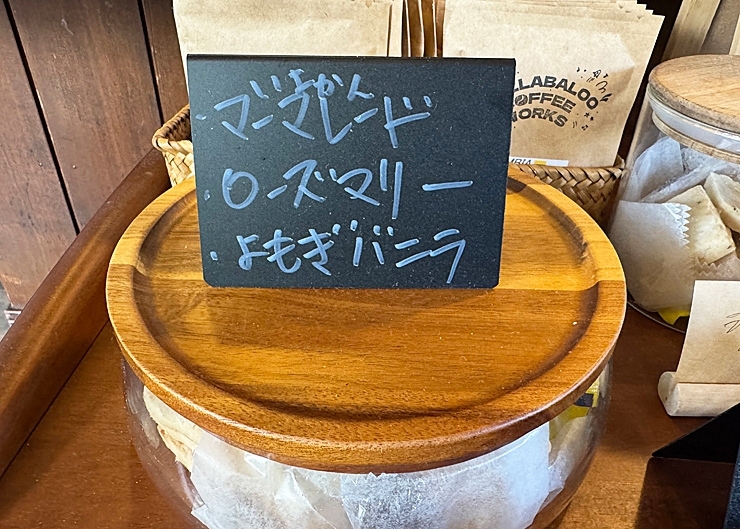 みかん
・マーマレード
・ローズマリー
・よもぎバニラ
LLABALOO
COFFEE
WORKS